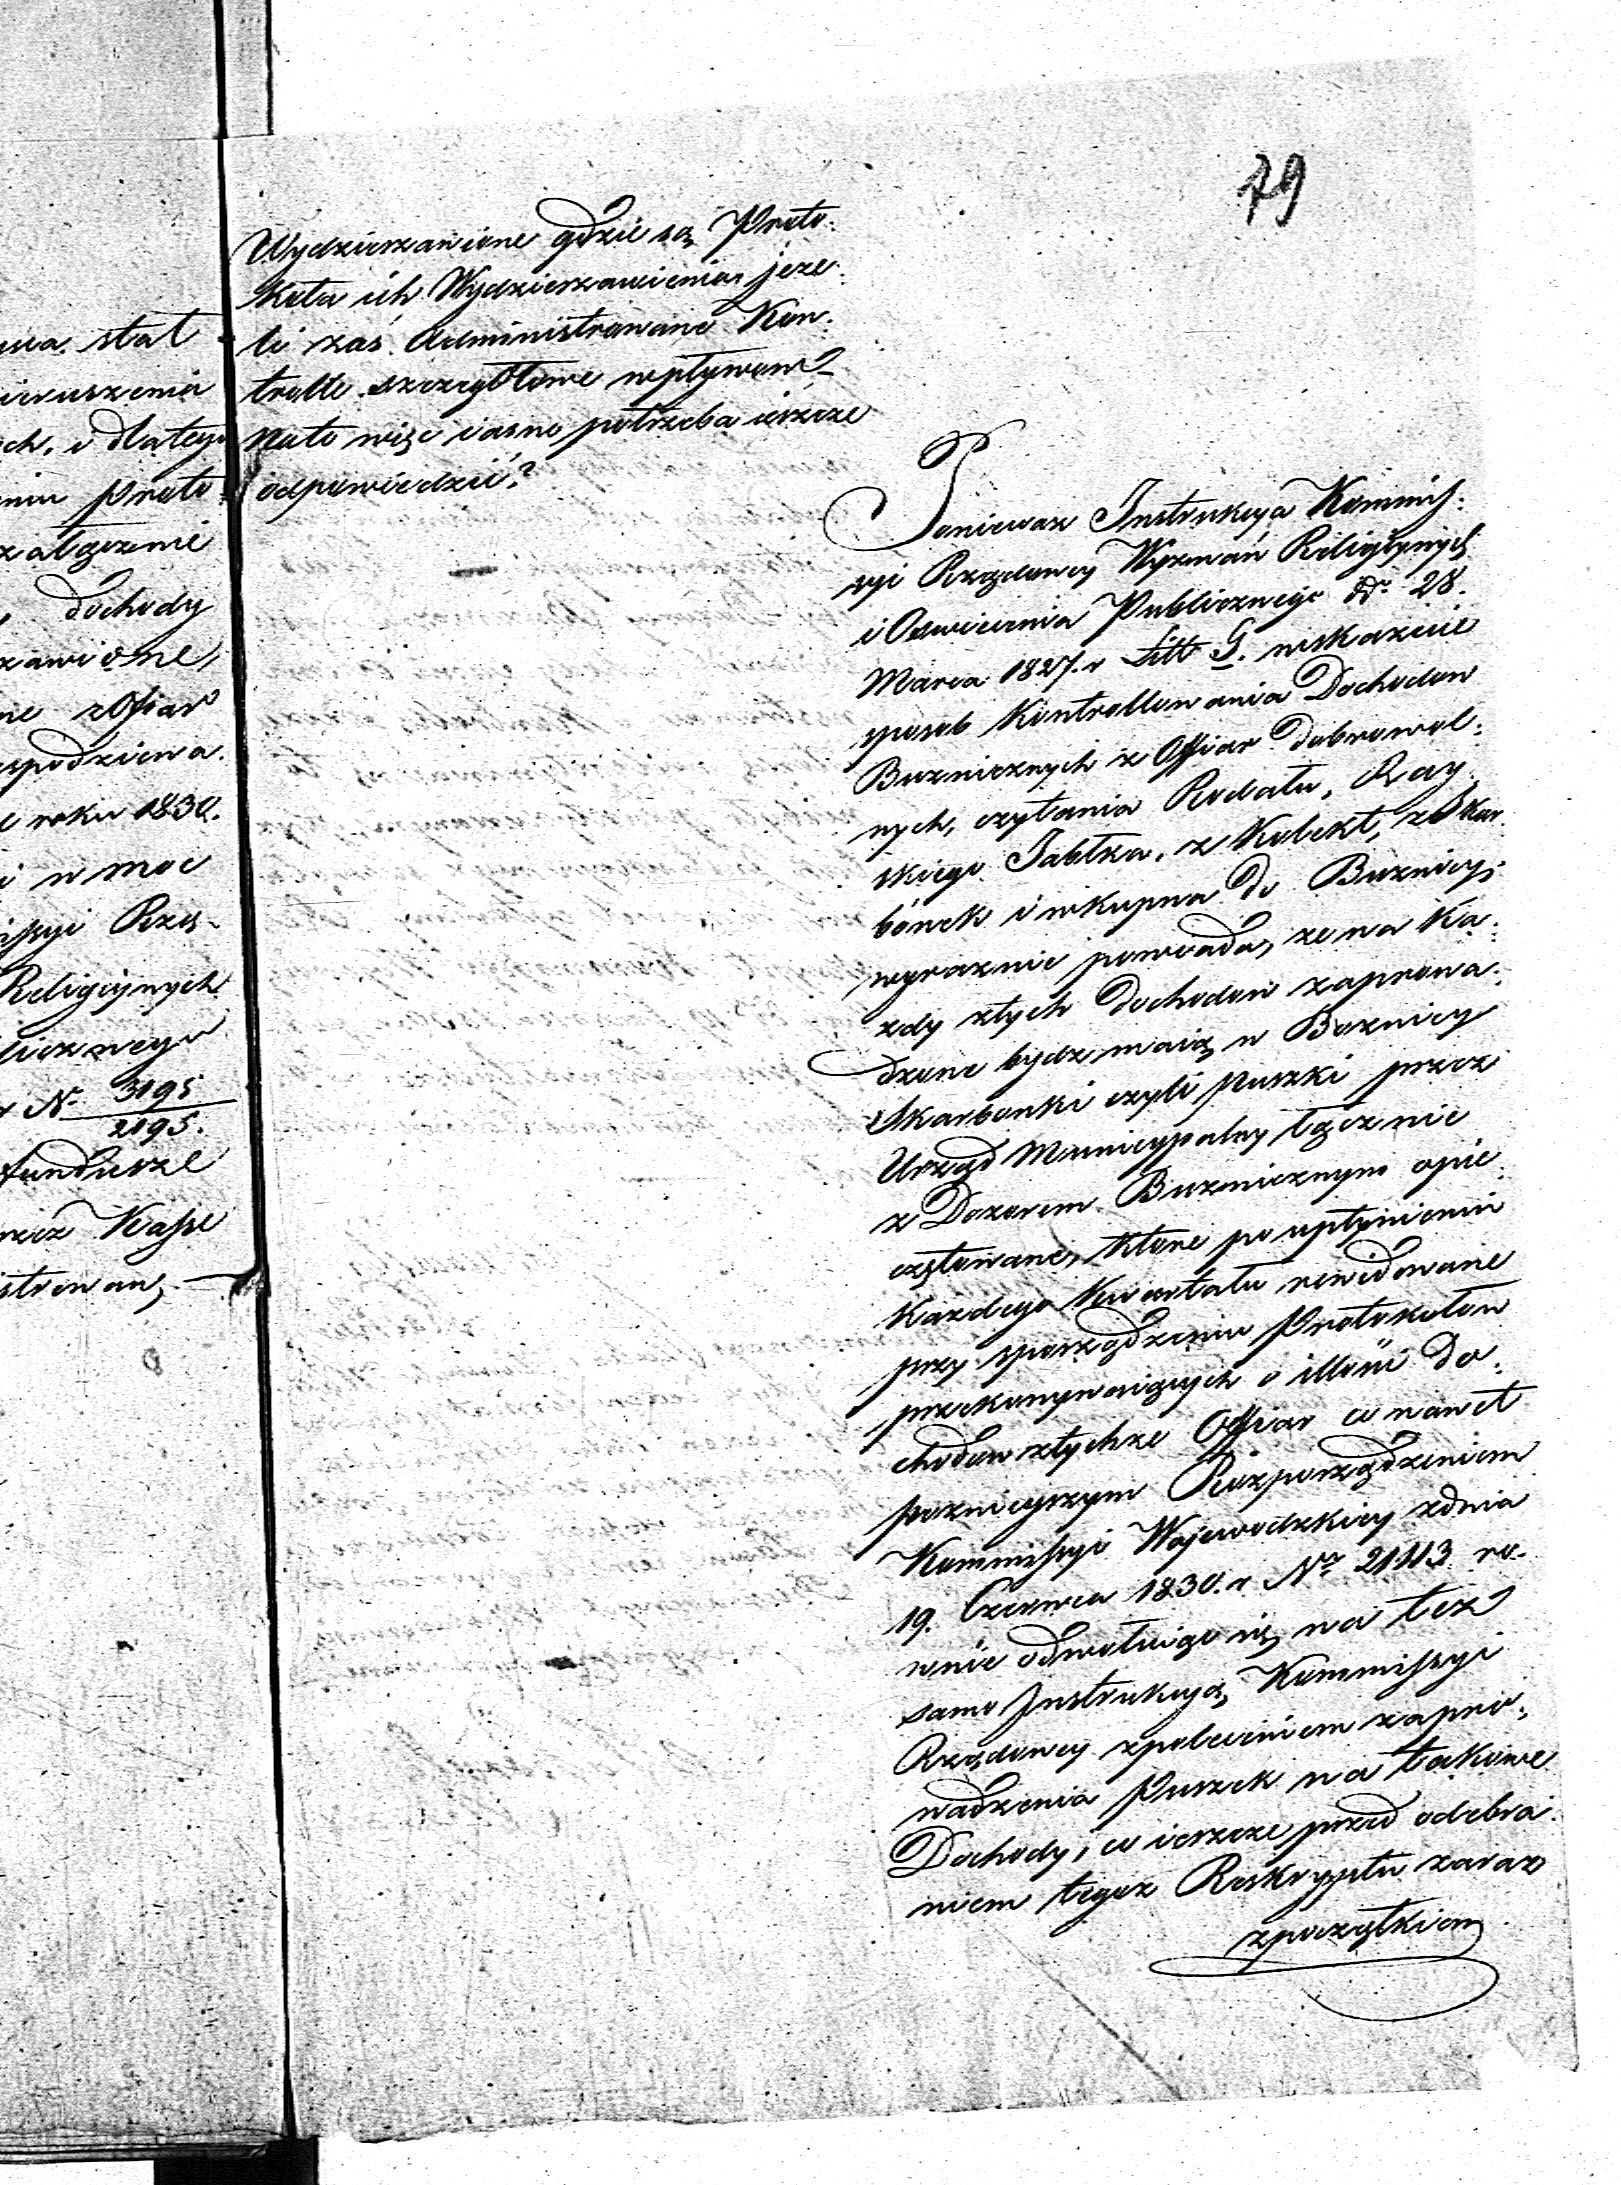 79
wca. stal
ieruszenia
ch. i dlatego
niu proto
załączenie
dochody
zawione,
ne z Ofiar
spodziewa.
roku 1830.
i w moc
issyi Rzą-
Religijnych
licznego
r No 3195
2195.
Fundusze
rzez Kasse
istrowan,
Wydzierzawione gdzie są Proto:
kóła ich Wydzierzawienia jeże:
li zaś Administrowane Kon:
trolle szczegółowe wpływow?
Nato więc iasno potrzeba ieszcze
odpowiedzić?
Poniewaz Instrukcya Kommis:
syi Rządowey Wyznań Religiynych
i Oswiecenia Publicznego dd. 28.
Marca 1827. r Litt G. wskazuie
sposob kontrollowania Dochodow
Buzniczych z Offiar dobrowol:
nych, czytania Rodału, Ray:
skiego Jabłka, z Kolekt, z Skar
bónek i wkupna do Buznicy;
wyraznie powiada, ze na Ka:
zdy z tych Dochodow zaprowa:
dzone bydz maią w Boznicy
Skarbonki czyli puszki przez
Urząd Municypalny łącznie
z Dozorem Buzniczym opie:
czętowane, które po upłynieniu
Kazdego Kwartału rewidowane
przy sporządzeniu Protokołow
przekonywaiących o illości Do:
chodow z tychze Offiar co nawet
pozniejszym Rozporządzeniem
Kommissyi Wojewodzkiey z dnia
19. Czerwca 1830. r No 21113 ro-
wnie odwołuiąc się na tez
samo Instrukcyą Kommissyi
Rządowey z poleceniem zapro:
wadzenia Puszek na takowe
Dochody, co ieszcze przed odebra:
niem tegoz Reskryptu zaraz
z początkiem